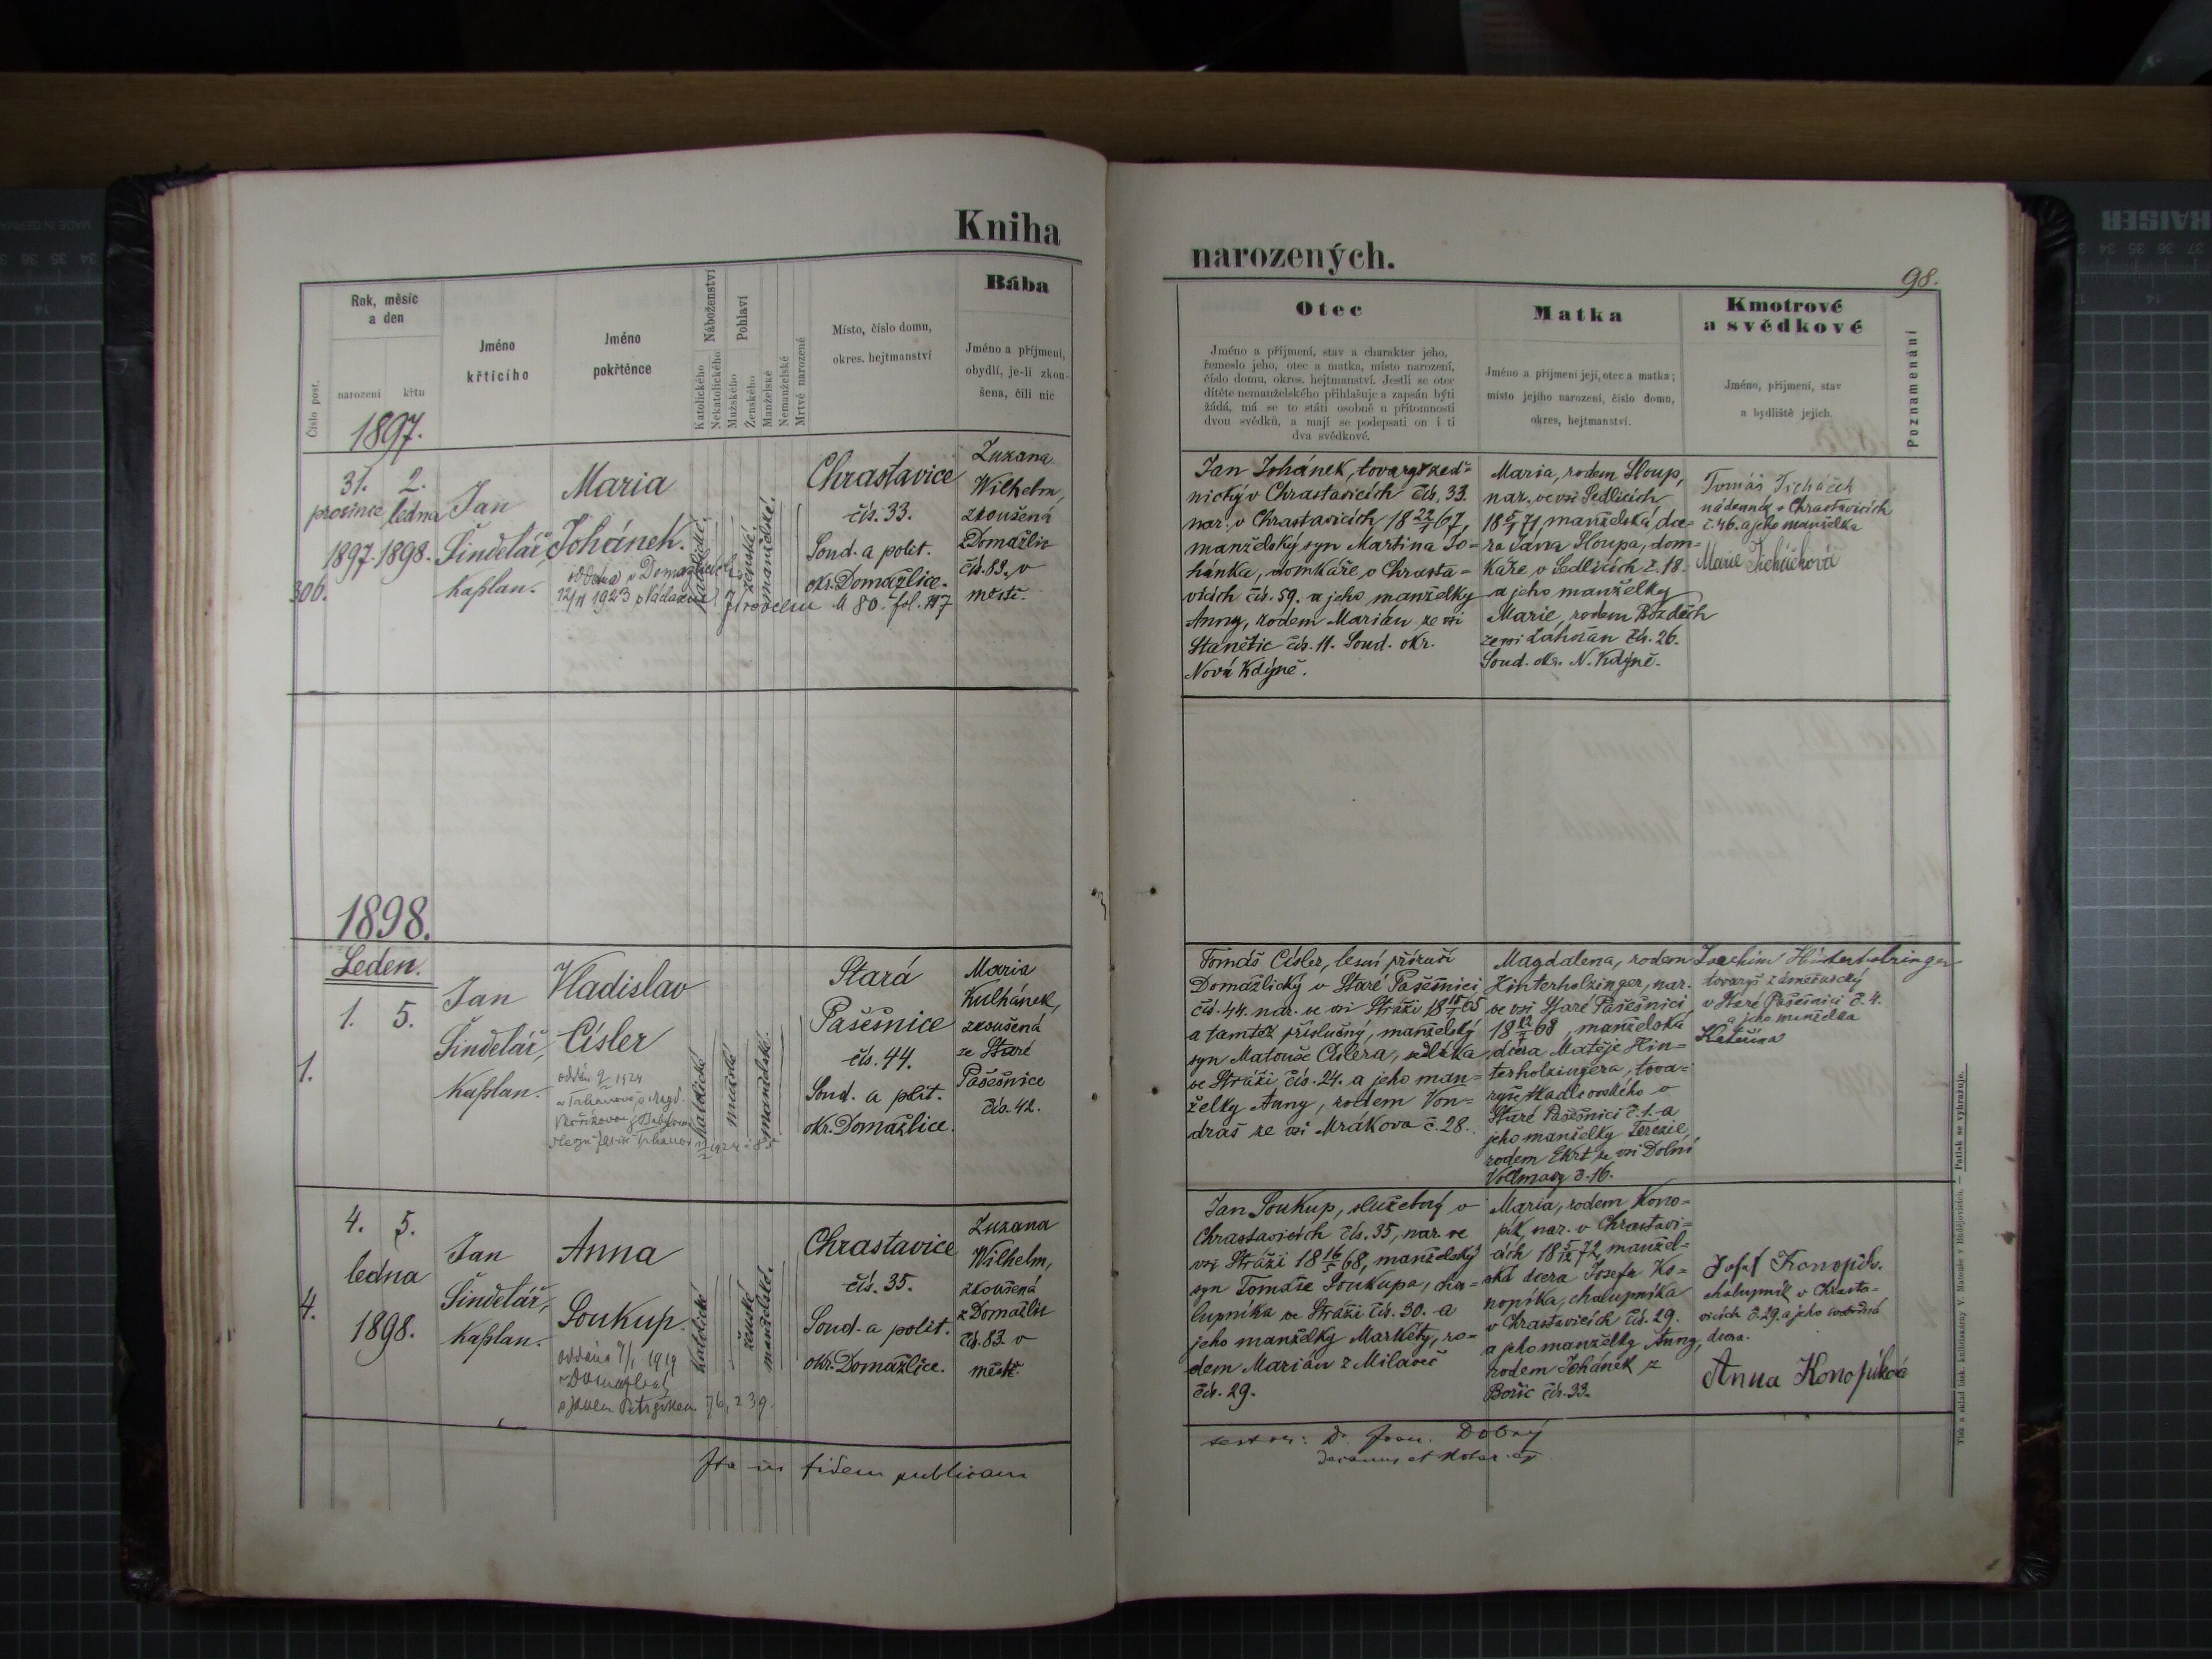 Kniha
Rok, měsíc
a den
Číslo post.
narození
křtu
Jméno
křtícího
Jméno
pokřtěnce
Náboženství
Katolického
Nekatolického
Pohlaví
Mužského
Ženského
Manželské
Nemanželské
Mrtvě narozené
Místo, číslo domu,
okres. hejtmanství
Bába
Jméno a příjmení,
obydlí, je-li zkou-
šena, čili nic
1897.
306.
31. 2.
prosince ledna
1897. 1898.
Jan
Šindelář,
Kaplan.
Maria
Johánek.
oddána v Domažlicích
12/11 1923
katolické
ženské
manželské.
80. fol. 117
Chrastavice
čís. 33.
Soud. a polit.
okr. Domažlice.
Zuzana
Wilhelm,
zkoušená
z Domažlic
čís. 83. v
městě.
1898.
Leden.
1.
1. 5.
Jan
Šindelář,
Kaplan.
Vladislav
Císler
katolické
mužské
manželské.
Stará
Pasečnice
čís. 44.
Soud. a polit.
okr. Domažlice.
Maria
Kulhánek,
zkoušená
ze Staré
Pasečnice
čís. 42.
4.
4. 5.
ledna
1898.
Jan
Šindelář,
Kaplan.
Anna
Soukup.
oddána 7/1 1919
katolické
ženské
manželské.
Chrastavice
čís. 35.
Soud. a polit.
okr. Domažlice.
Zuzana
Wilhelm,
zkoušená
z Domažlic
čís. 83. v
městě.
Ita in fidem publicam
narozených.
98.
Otec
Jméno a příjmení, stav a charakter jeho,
řemeslo jeho, otec a matka, místo narození,
číslo domu, okres. hejtmanství. Jestli se otec
dítěte nemanželského přihlašuje a zapsán býti
žádá, má se to státi osobně u přítomnosti
dvou svědků, a mají se podepsati on i ti
dva svědkové.
Matka
Jméno a příjmení její, otec a matka;
místo jejího narození, číslo domu,
okres, hejtmanství.
Kmotrové
a svědkové
Jméno, příjmení, stav
a bydliště jejich.
Poznamenání
Jan Johánek, tovaryš zed-
nický v Chrastavicích čís. 33.
nar. v Chrastavicích 18 22/1 67,
manželský syn Martina Jo-
hánka, domkáře v Chrasta-
vicích čís. 59. a jeho manželky
Anny, rodem Marián ze vsi
Stanětic čís. 11. Soud. okr.
Nová Kdýně.
Maria, rodem Sloup,
nar. ve vsi Sedlicích
18 5/1 71, manželská dce-
ra Jána Sloupa, dom-
káře v Sedlicích č. 18.
a jeho manželky
Marie, rodem Bozděch
ze vsi Láhořan čís. 26.
Soud. okr. N. Kdýně.
Tomáš Ticháček
nádenník v Chrastavicích
č. 46. a jeho manželka
Marie Ticháčková
Tomáš Císler, lesní příručí
Domažlický v Staré Pasečnici
čís. 44. nar. ve vsi Stráži
a tamtéž příslušný, manželský
syn Matouše Císlera, sedláka
ve Stráži čís. 24. a jeho man-
želky Anny, rodem Von-
draš ze vsi Mrákova č. 28.
Magdalena, rodem
Hinterholzinger, nar.
ve vsi Staré Pasečnici
manželská
dcera Matěje Hin-
terholzingera, tova-
ryše tkadlcovského v
Staré Pasečnici č. 1. a
jeho manželky Terezie,
rodem Ekrt ze vsi Dolní
Vollmavy č. 16.
Joachim Hinterholzinger
tovaryš zámečnický
v Staré Pasečnici č. 4.
a jeho manželka
Kateřina
Jan Soukup, služebný v
Chrastavicích čís. 35, nar. ve
vsi Stráži 18 16/5 68, manželský
syn Tomáše Soukupa, cha-
lupníka ve Stráži čís. 30. a
jeho manželky Markéty, ro-
dem Marián z Milaveč
čís. 29.
Maria, rodem Kono-
pík, nar. v Chrastavi-
cích 18 5/12 72, manžel-
ská dcera Josefa Ko-
nopíka, chalupníka
v Chrastavicích čís. 29.
a jeho manželky Anny,
rodem Johánek z
Bořic čís. 33.
Josef Konopík.
chalupník v Chrasta-
vicích č. 29. a jeho svobodná
dcera.
Anna Konopíková
Dobrý
Tisk a sklad tisk. knihtiskárny V. Matouše v Budějovicích. — Patisk se vyhrazuje.